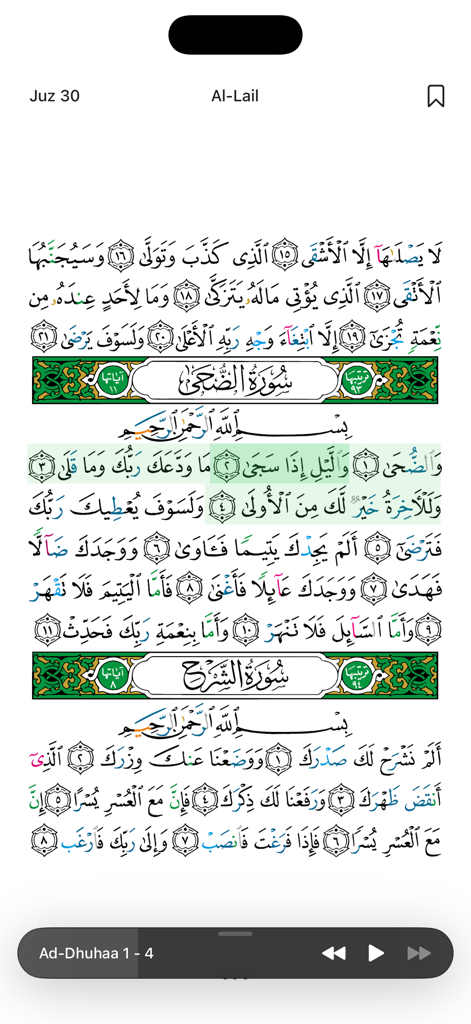 Juz 30
Al-Lail
لَا يَصْلَىٰهَآ إِلَّا ٱلْأَشْقَى ١٥ ٱلَّذِى كَذَّبَ وَتَوَلَّىٰ ١٦ وَسَيُجَنَّبُهَا
ٱلْأَتْقَى ١٧ ٱلَّذِى يُؤْتِى مَالَهُۥ يَتَزَكَّىٰ ١٨ وَمَا لِأَحَدٍ عِندَهُۥ مِن
نِّعْمَةٍ تُجْزَىٰٓ ١٩ إِلَّا ٱبْتِغَآءَ وَجْهِ رَبِّهِ ٱلْأَعْلَىٰ ٢٠ وَلَسَوْفَ يَرْضَىٰ ٢١
ترتيبها ٩٣ سُورَةُ الضُّحَىٰ آياتها ١١
بِسْمِ ٱللَّهِ ٱلرَّحْمَٰنِ ٱلرَّحِيمِ
وَٱلضُّحَىٰ ١ وَٱلَّيْلِ إِذَا سَجَىٰ ٢ مَا وَدَّعَكَ رَبُّكَ وَمَا قَلَىٰ ٣
وَلَلْأَخِرَةُ خَيْرٌ لَّكَ مِنَ ٱلْأُولَىٰ ٤ وَلَسَوْفَ يُعْطِيكَ رَبُّكَ
فَتَرْضَىٰٓ ٥ أَلَمْ يَجِدْكَ يَتِيمًا فَـَٔاوَىٰ ٦ وَوَجَدَكَ ضَآلًّا
فَهَدَىٰ ٧ وَوَجَدَكَ عَآئِلًا فَأَغْنَىٰ ٨ فَأَمَّا ٱلْيَتِيمَ فَلَا تَقْهَرْ
٩ وَأَمَّا ٱلسَّآئِلَ فَلَا تَنْهَرْ ١٠ وَأَمَّا بِنِعْمَةِ رَبِّكَ فَحَدِّثْ ١١
ترتيبها ٩٤ سُورَةُ الشَّرْحِ آياتها ٨
بِسْمِ ٱللَّهِ ٱلرَّحْمَٰنِ ٱلرَّحِيمِ
أَلَمْ نَشْرَحْ لَكَ صَدْرَكَ ١ وَوَضَعْنَا عَنكَ وِزْرَكَ ٢ ٱلَّذِىٓ
أَنقَضَ ظَهْرَكَ ٣ وَرَفَعْنَا لَكَ ذِكْرَكَ ٤ فَإِنَّ مَعَ ٱلْعُسْرِ يُسْرًا ٥ إِنَّ
مَعَ ٱلْعُسْرِ يُسْرًا ٦ فَإِذَا فَرَغْتَ فَٱنصَبْ ٧ وَإِلَىٰ رَبِّكَ فَٱرْغَب ٨
Ad-Dhuhaa 1 - 4